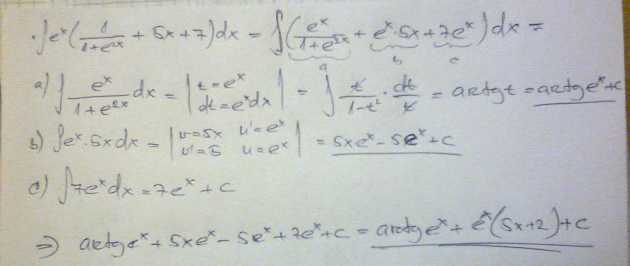 · ∫eˣ(1/(1+e²ˣ) + 5x + 7)dx = ∫(eˣ/(1+e²ˣ) + eˣ·5x + 7eˣ)dx =
a b c
a) ∫ eˣ/(1+e²ˣ) dx = | t=eˣ dt=eˣdx | = ∫ t/(1-t²) · dt/t = arctgt = arctgeˣ+c
b) ∫eˣ·5xdx = | v=5x u'=eˣ v'=5 u=eˣ | = 5xeˣ-5eˣ+c
c) ∫7eˣdx = 7eˣ+c
⇒ arctgeˣ+5xeˣ-5eˣ+7eˣ+c = arctgeˣ+eˣ(5x+2)+c